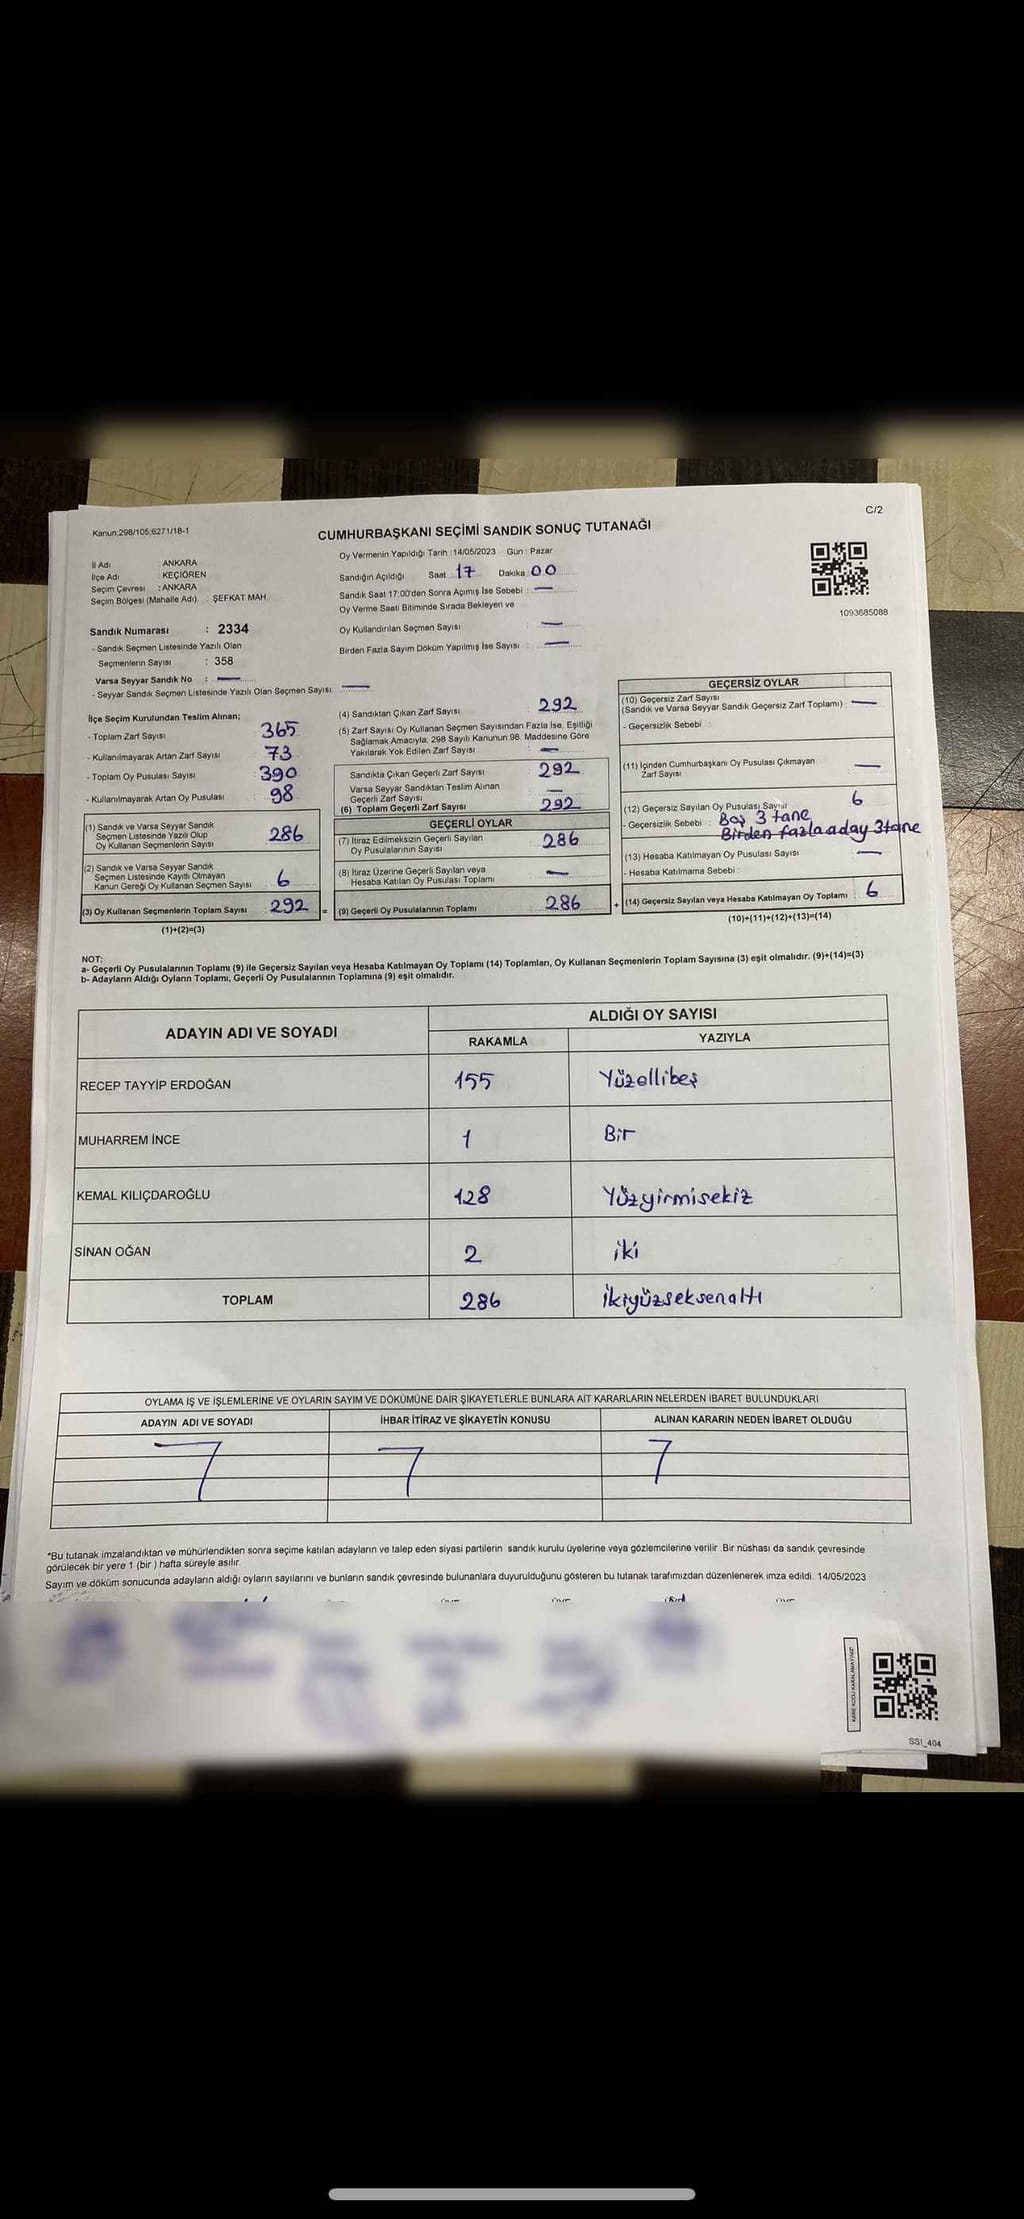 C/2
Kanun:298/105,6271/18-1
CUMHURBAŞKANI SEÇİMİ SANDIK SONUÇ TUTANAĞI
İl Adı : ANKARA
İlçe Adı : KEÇİÖREN
Seçim Çevresi : ANKARA
Seçim Bölgesi (Mahalle Adı) : ŞEFKAT MAH.
Sandık Numarası : 2334
- Sandık Seçmen Listesinde Yazılı Olan
Seçmenlerin Sayısı : 358
Varsa Seyyar Sandık No : —
- Seyyar Sandık Seçmen Listesinde Yazılı Olan Seçmen Sayısı: —
Oy Vermenin Yapıldığı Tarih : 14/05/2023 Gün : Pazar
Sandığın Açıldığı Saat 17 Dakika : 00
Sandık Saat 17:00'den Sonra Açımış İse Sebebi : —
Oy Verme Saati Bitiminde Sırada Bekleyen ve
Oy Kullandırılan Seçmen Sayısı : —
Birden Fazla Sayım Döküm Yapılmış İse Sayısı : —
1093685088
İlçe Seçim Kurulundan Teslim Alınan;
- Toplam Zarf Sayısı : 365
- Kullanılmayarak Artan Zarf Sayısı : 73
- Toplam Oy Pusulası Sayısı : 390
- Kullanılmayarak Artan Oy Pusulası : 98
(1) Sandık ve Varsa Seyyar Sandık
Seçmen Listesinde Yazılı Olup
Oy Kullanan Seçmenlerin Sayısı : 286
(2) Sandık ve Varsa Seyyar Sandık
Seçmen Listesinde Kayıtlı Olmayan
Kanun Gereği Oy Kullanan Seçmen Sayısı : 6
(3) Oy Kullanan Seçmenlerin Toplam Sayısı 292 =
(1)+(2)=(3)
(4) Sandıktan Çıkan Zarf Sayısı : 292
(5) Zarf Sayısı Oy Kullanan Seçmen Sayısından Fazla İse, Eşitliği
Sağlamak Amacıyla; 298 Sayılı Kanunun 98. Maddesine Göre
Yakılarak Yok Edilen Zarf Sayısı : —
Sandıkta Çıkan Geçerli Zarf Sayısı : 292
Varsa Seyyar Sandıktan Teslim Alınan
Geçerli Zarf Sayısı : —
(6) Toplam Geçerli Zarf Sayısı : 292
GEÇERLİ OYLAR
(7) İtiraz Edilmeksizin Geçerli Sayılan
Oy Pusulalarının Sayısı : 286
(8) İtiraz Üzerine Geçerli Sayılan veya
Hesaba Katılan Oy Pusulası Toplamı : —
(9) Geçerli Oy Pusulalarının Toplamı : 286 +
GEÇERSİZ OYLAR
(10) Geçersiz Zarf Sayısı
(Sandık ve Varsa Seyyar Sandık Geçersiz Zarf Toplamı) : —
- Geçersizlik Sebebi :
(11) İçinden Cumhurbaşkanı Oy Pusulası Çıkmayan
Zarf Sayısı —
(12) Geçersiz Sayılan Oy Pusulası Sayısı 6
- Geçersizlik Sebebi : Boş 3 tane
Birden fazla aday 3tane
(13) Hesaba Katılmayan Oy Pusulası Sayısı : —
- Hesaba Katılmama Sebebi :
(14) Geçersiz Sayılan veya Hesaba Katılmayan Oy Toplamı : 6
(10)+(11)+(12)+(13)=(14)
NOT:
a- Geçerli Oy Pusulalarının Toplamı (9) ile Geçersiz Sayılan veya Hesaba Katılmayan Oy Toplamı (14) Toplamları, Oy Kullanan Seçmenlerin Toplam Sayısına (3) eşit olmalıdır. (9)+(14)=(3)
b- Adayların Aldığı Oyların Toplamı, Geçerli Oy Pusulalarının Toplamına (9) eşit olmalıdır.
ADAYIN ADI VE SOYADI ALDIĞI OY SAYISI
RAKAMLA YAZIYLA
RECEP TAYYİP ERDOĞAN 155 Yüzellibeş
MUHARREM İNCE 1 Bir
KEMAL KILIÇDAROĞLU 128 Yüzyirmisekiz
SİNAN OĞAN 2 iki
TOPLAM 286 ikiyüzseksenaltı
OYLAMA İŞ VE İŞLEMLERİNE VE OYLARIN SAYIM VE DÖKÜMÜNE DAİR ŞİKAYETLERLE BUNLARA AİT KARARLARIN NELERDEN İBARET BULUNDUKLARI
ADAYIN ADI VE SOYADI İHBAR İTİRAZ VE ŞİKAYETİN KONUSU ALINAN KARARIN NEDEN İBARET OLDUĞU
*Bu tutanak imzalandıktan ve mühürlendikten sonra seçime katılan adayların ve talep eden siyasi partilerin sandık kurulu üyelerine veya gözlemcilerine verilir. Bir nüshası da sandık çevresinde
görülecek bir yere 1 (bir ) hafta süreyle asılır.
Sayım ve döküm sonucunda adayların aldığı oyların sayılarını ve bunların sandık çevresinde bulunanlara duyurulduğunu gösteren bu tutanak tarafımızdan düzenlenerek imza edildi. 14/05/2023
KARE KODU KARALAMAYINIZ!
SSI_404